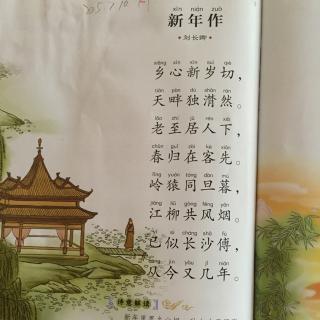 xīn nián zuò
新年作
刘长卿
xiāng xīn xīn suì qiè
乡心新岁切，
tiān pàn dú shān rán
天畔独潸然。
lǎo zhì jū rén xià
老至居人下，
chūn guī zài kè xiān
春归在客先。
lǐng yuán tóng dàn mù
岭猿同旦暮，
jiāng liǔ gòng fēng yān
江柳共风烟。
yǐ sì cháng shā fù
已似长沙傅，
cóng jīn yòu jǐ nián
从今又几年。
诗意解读